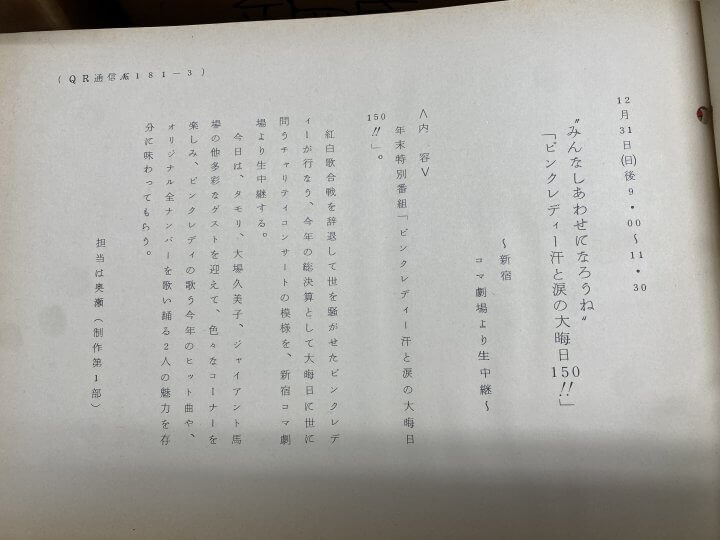 12月31日(日)後9・00〜11・30
〝みんなしあわせになろうね〟
「ピンクレディー汗と涙の大晦日150!!」
〜新宿
コマ劇場より生中継〜
<内 容>
年末特別番組「ピンクレディー汗と涙の大晦日
150!!」。
紅白歌合戦を辞退して世を騒がせたピンクレデ
ィーが行なう、今年の総決算として大晦日に世に
問うチャリティコンサートの模様を、新宿コマ劇
場より生中継する。
今日は、タモリ、大場久美子、ジャイアント馬
場の他多彩なゲストを迎えて、色々なコーナーを
楽しみ、ピンクレディの歌う今年のヒット曲や、
オリジナル全ナンバーを歌い踊る2人の魅力を存
分に味わってもらう。
担当は奥瀬(制作第1部)
(QR通信№181−3)